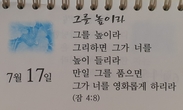 그를 높이라
그를 높이라
그리하면 그가 너를
높이 들리라
만일 그를 품으면
그가 너를 영화롭게 하리라
(잠 4:8)
7월 17일